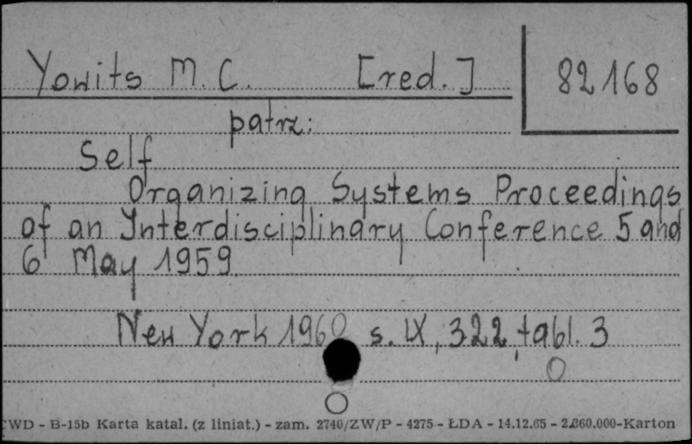 Yowits M. C. [red.]
82168
patrz:
Self
Organizing Systems Proceedings
of an Interdisciplinary Conference 5 and
6 May 1959
New York 1960 s. IX, 322, tabl. 3
CWD - B-15b Karta katal. (z liniat.) - zam. 2740/ZW/P - 4275 - ŁDA - 14.12.65 - 2.860.000-Karton